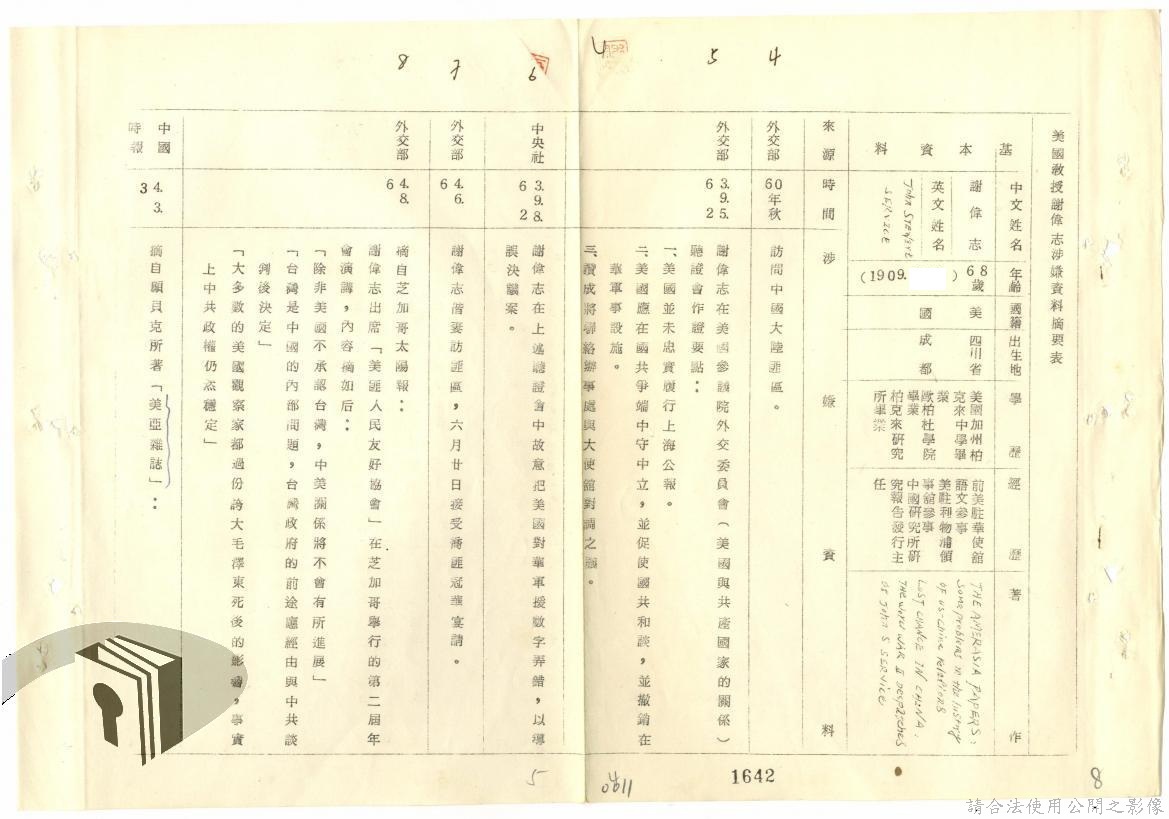 美國教授謝偉志涉嫌資料摘要表
基本資料
中文姓名
謝偉志
英文姓名
John STEWART
SERVICE
年齡
68歲
(1909. )
國籍
美國
出生地
四川省
成都
學歷
美國加州柏
克來中學畢
業
歐柏杜學院
畢業
柏克來研究
所畢業
經歷
前美駐華使館
語文參事
美駐利物浦領
事館參事
中國研究所研
究報告發行主
任
著作
THE AMERASIA PAPERS:
Some problems in the history
of US-China relations
LOST CHANCE IN CHINA:
THE WORLD WAR II DESPATCHES
OF JOHN S SERVICE
來源
時間
涉嫌資料
4
外交部
60年秋
訪問中國大陸匪區。
5
外交部
63.9.25.
謝偉志在美國參議院外交委員會(美國與共產國家的關係)
聽證會作證要點:
一、美國並未忠實履行上海公報。
二、美國應在國共爭端中守中立,並促使國共和談,並撤銷在
華軍事設施。
三、贊成將聯絡辦事處與大使館對調之議。
6
中央社
63.9.28.
謝偉志在上述聽證會中故意把美國對華軍援數字弄錯,以導
誤決議案。
7
外交部
64.6.
謝偉志偕妻訪匪區,六月廿日接受喬匪冠華宴請。
8
外交部
64.8.
摘自芝加哥太陽報:
謝偉志出席「美匪人民友好協會」在芝加哥舉行的第二屆年
會演講,內容摘如后:
「除非美國不承認台灣,中美關係將不會有所進展」
「台灣是中國的內部問題,台灣政府的前途應經由與中共談
判後決定」
「大多數的美國觀察家都過份誇大毛澤東死後的影響,事實
上中共政權仍甚穩定」
中國時報
34.4.3.
摘自顧貝克所著「美亞雜誌」:
5
0411
1642
8
請合法使用公開之影像